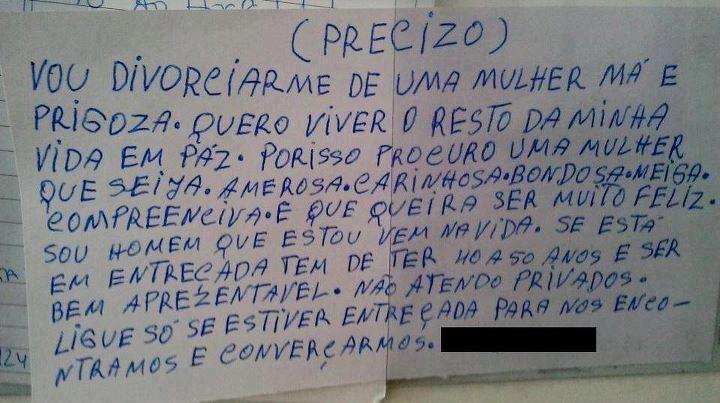 (PRECIZO)
VOU DIVORCIARME DE UMA MULHER MÁ E
PRIGOZA. QUERO VIVER O RESTO DA MINHA
VIDA EM PÁZ. PORISSO PROCURO UMA MULHER
QUE SEIJA. AMEROSA. CARINHOSA. BONDOSA. MEIGA.
COMPREENCIVA. E QUE QUEIRA SER MUITO FELIZ.
SOU HOMEM QUE ESTOU VEM NA VIDA. SE ESTÁ
EM ENTREÇADA TEM DE TER 40 A 50 ANOS E SER
BEM APREZENTAVEL. NÃO ATENDO PRIVADOS.
LIGUE SÓ SE ESTIVER ENTREÇADA PARA NOS ENCO-
NTRAMOS E CONVERÇARMOS.
124